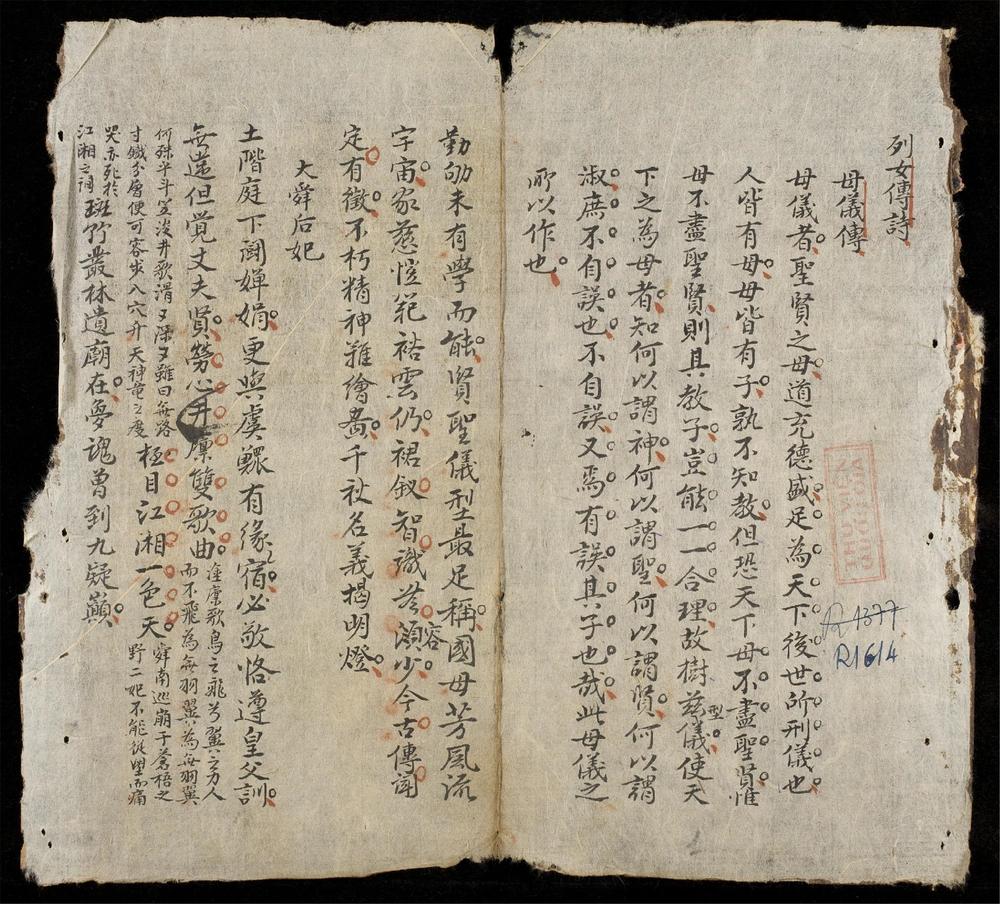 列女傳詩
母儀傳
母儀者聖賢之母道充德盛足為天下後世所刑儀也
人皆有母母皆有子孰不知教但恐天下母不盡聖賢惟
母不盡聖賢則其教子豈能一一合理故樹茲儀型使天
下之為母者知何以謂神何以謂聖何以謂賢何以謂
淑庶不自誤也不自誤又焉有誤其子也哉此母儀之
所以作也
勤劬未有學而能賢聖儀型最足稱國母芳風流
宇宙家慈愷範裕雲仍裙釵智識䒭頗少今古傳聞
容
定有徵不朽精神難繪畵千秋名義揭明燈
大舜后妃
土階庭下闹嬋娟更與虞鰥有緣宿必敬恪遵皇父訓
無違但覚丈夫賢勞心井廪雙歌曲塗廪歌鳥之飛兮翼之力人
而不飛為無羽翼為無羽翼
何殊平斗笠浚井歌渭又深又雖曰無路
寸鐵分層便可容步入穴升天神竜之度極目江湘一色天舜南巡崩于蒼梧之
野二妃不能從望而痛
哭亦死於
江湘之潯斑竹叢林遺廟在夢魂曾到九疑巔
R 4377
R1614